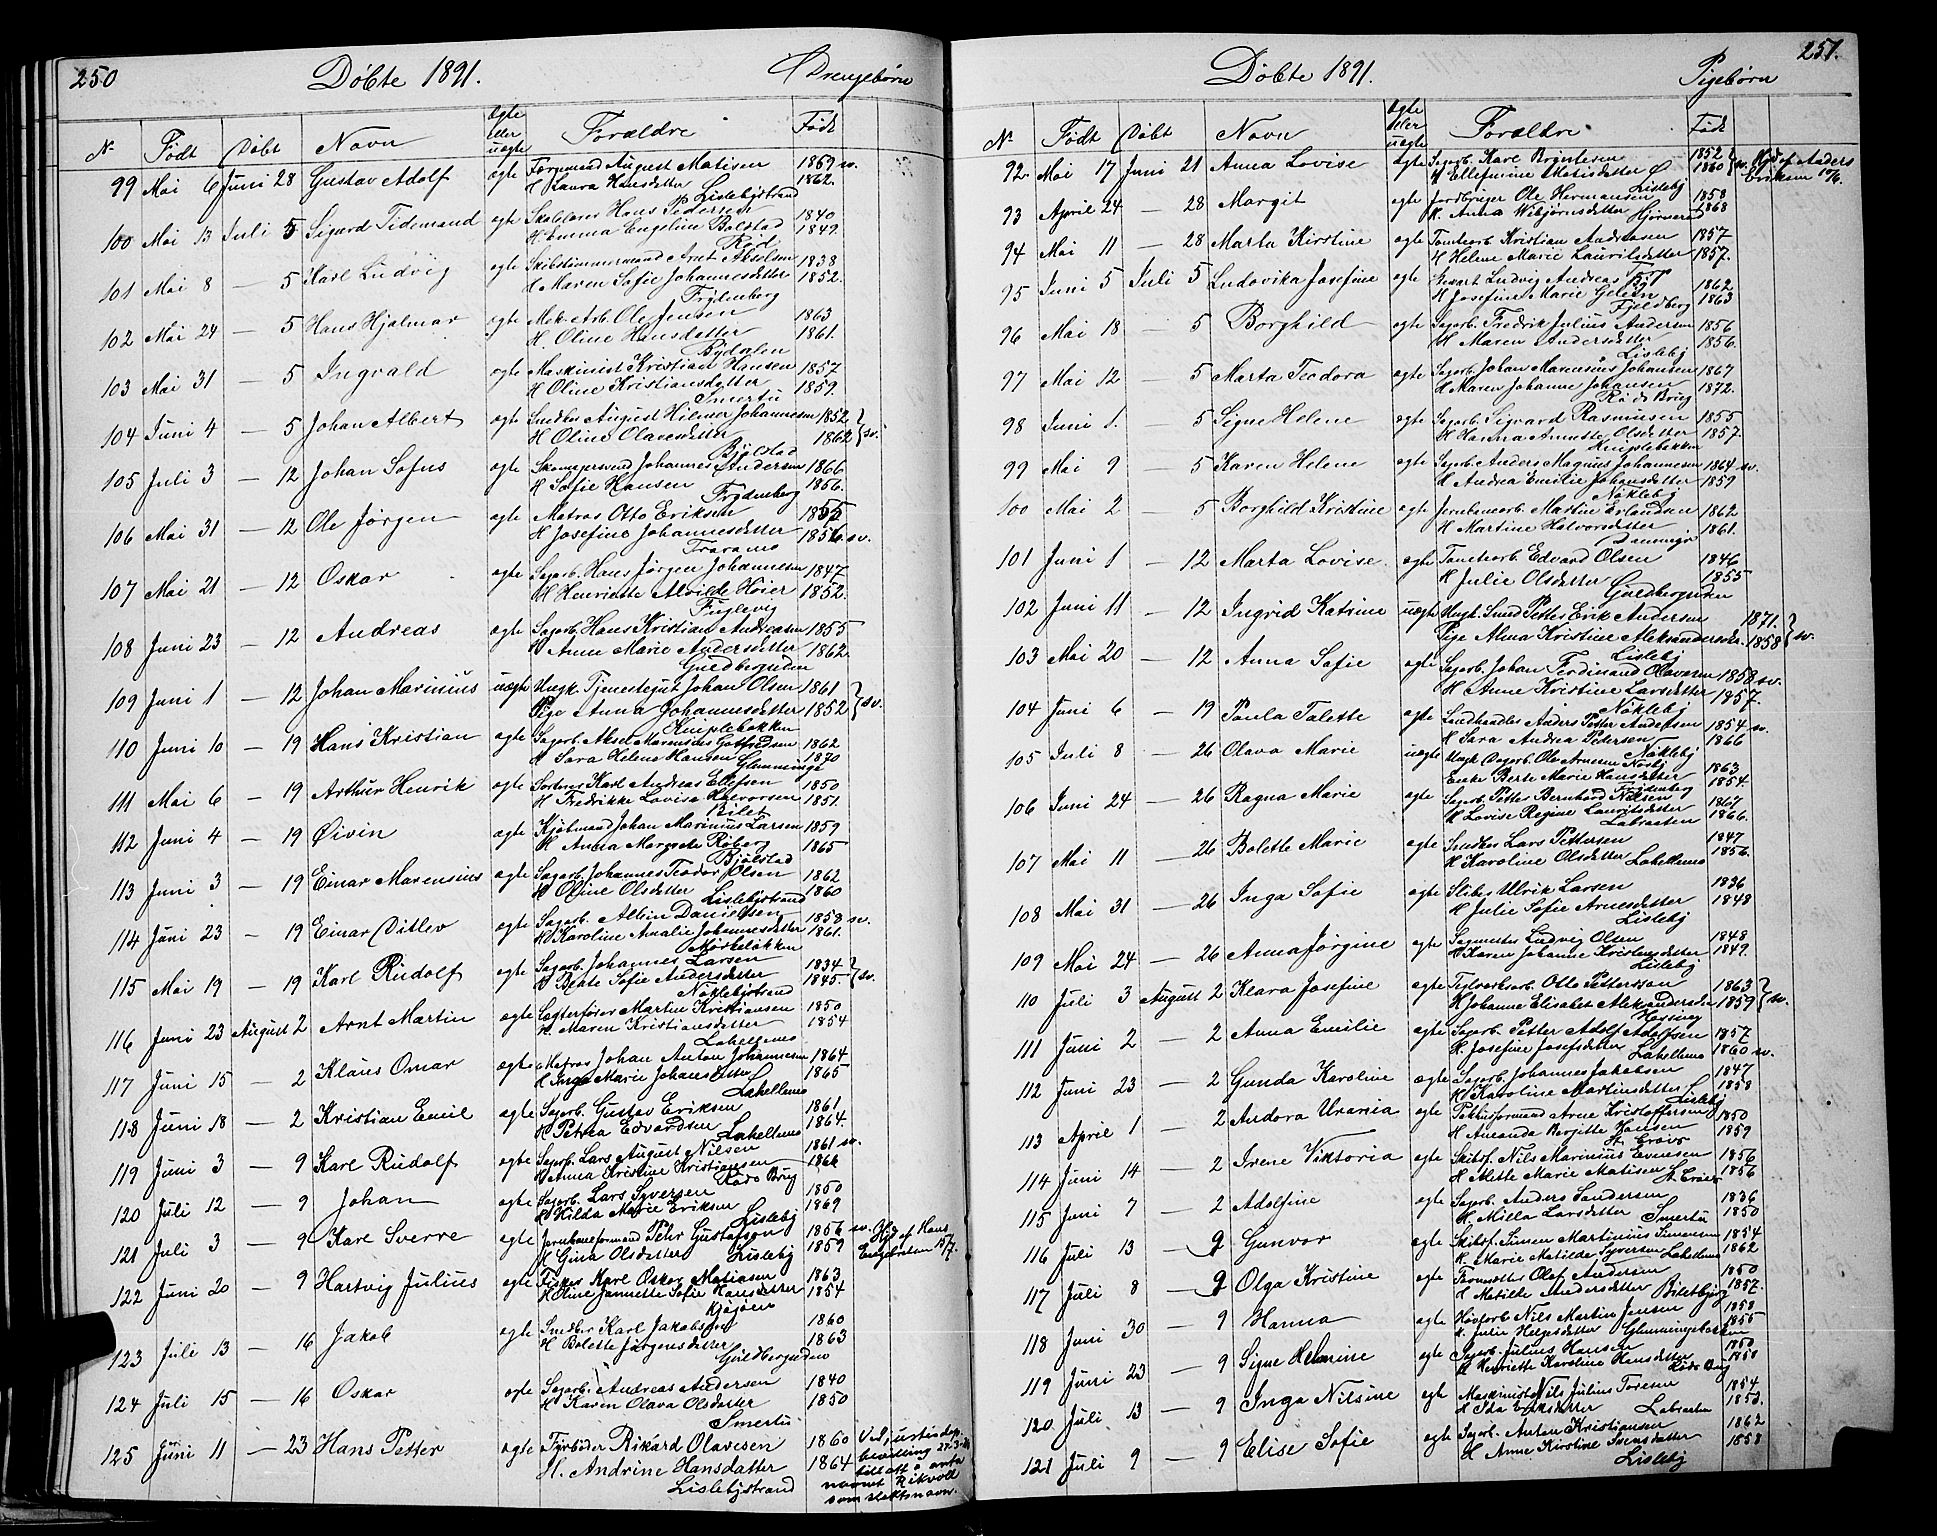 250 Döbte 1891. Drengebörn
Nr Födt Döbt Navn Ægte eller uægte Forældre Födt
99 Mai 6 Juni 28 Gustav Adolf ægte Formand August Matisen 1869 sv.
H Laura Hansdatter 1862.
Lislebystrand
100 Mai 13 Juli 5 Sigurd Tidemand ægte Skolelærer Hans Pedersen 1840
H Emma Engeline Bolstad 1849.
101 Mai 8 — 5 Karl Ludvig ægte Skibstømmermand Arnt Akselsen 1838
H Maren Sofie Johannesdatter 1852.
Frydenberg
102 Mai 24 — 5 Hans Hjalmar ægte Mek. Arb. Ole Jensen 1863
H. Oline Hansdatter 1861.
Bydalen
103 Mai 31 — 5 Ingvald ægte Maskinist Kristian Hansen 1857
H Oline Kristiansdatter 1859.
Smertu
104 Juni 4 — 5 Johan Albert ægte Snedker August Hilmer Johannesen 1852
H Oline Olavesdatter 1862 } sv.
Bjölstad
105 Juli 3 — 12 Johan Sofus ægte Skomagersvend Johannes Andersen 1866
H Sofie Hansen 1866.
Frydenberg
106 Mai 31 — 12 Ole Jörgen ægte Matros Otto Eriksen 1855
H Josefine Johannesdatter 1856 sv.
Traramo
107 Mai 21 — 12 Oskar ægte Sagarb. Hans Jörgen Johannesen 1847
H Henriette Alvilde Høier 1852.
Fuglevig
108 Juni 23 — 12 Andreas ægte Sagarb. Hans Kristian Andreasen 1855
H Anne Marie Andersdatter 1862.
Guldbergsiden
109 Juni 1 — 12 Johan Marinius uægte Ungk. Tjenestegut Johan Olsen 1861
Pige Anna Johannesdatter 1852 } sv.
Kniplebakken
110 Juni 10 — 19 Hans Kristian ægte Sagarb. Aksel Marensius Gotfredsen 1862
H Sara Helene Hansen 1870
Glemminge
111 Mai 6 — 19 Arthur Henrik ægte Sorterer Karl Andreas Ellefsen 1850
H Fredrikke Lovise Halvorsen 1851.
Bilet
112 Juni 4 — 19 Øivin ægte Kjøbmand Johan Marinius Larsen 1859
H Anna Margrete Roberg 1865
Bjölstad
113 Juni 3 — 19 Einar Marensius ægte Sagarb. Johannes Teodor Olsen 1862
H Oline Olsdatter 1860
Lislebystrand
114 Juni 23 — 19 Einar Ditlev ægte Sagarb. Albin Danielsen 1858 sv.
H Karoline Amalie Johannesdatter 1861.
Mørkeløkken
115 Mai 19 — 19 Karl Rudolf ægte Sagarb. Johannes Larsen 1834
H Beate Sofie Andersdatter 1845. } sv.
Nöklebystrand
116 Juni 23 August 2 Arnt Martin ægte Lægterfører Martin Kristiansen 1850
H Maren Kristiansdatter 1854
Lahellemo
117 Juni 15 — 2 Klaus Omar ægte Matros Johan Anton Johannesen 1864
H Inga Marie Johansdatter 1865
Lahellemo
118 Juni 18 — 2 Kristian Emil ægte Sagarb. Gustav Eriksen 1861
H Petrea Edvardsen 1864.
Lahellemo
119 Juni 3 — 9 Karl Rudolf ægte Sagarb. Lars August Nilsen 1861 sv.
H Anna Kristine Kristiansen 1866
Røds Brug
120 Juli 12 — 9 Johan ægte Sagarb. Lars Syversen 1850
H Hilda Marie Eriksen 1869
Lisleby
121 Juli 3 — 9 Karl Sverre ægte Jernbaneformand Pehr Gustafson 1856 sv. Hjd af Hans
H Gina Olsdatter Lisleby 1859 Engebretsen 15/7.
122 Juni 20 — 9 Hartvig Julius ægte Fisker Karl Oskar Matiasen 1863
H Oline Jannette Sofie Hansdatter 1854
Kjøgöen
123 Juli 13 — 16 Jakob ægte Snedker Karl Jakobsen 1860
H Bolette Jørgensdatter 1863
Guldbergsiden
124 Juli 15 — 16 Oskar ægte Sagarb. Andreas Andersen 1840
H Karen Olava Olsdatter 1850
Smertu
125 Juni 11 — 23 Hans Petter ægte Fyrbøder Rikard Olavesen 1860 Ved justisdep.
H. Andrine Hansdatter 1864 bevilling 27-3-24
Lislebystrand tillatt å anta
navnet Rikvoll
som slektsnavn.
Döbte 1891. Pigebörn 251.
Nr Födt Döbt Navn Ægte eller uægte Forældre Födt
92 Mai 17 Juni 21 Anna Lovise ægte Sagarb. Karl Bryntesen 1852
H Ellefmine Matisdatter Ø 1860 } sv. Hjd af Anders
Lisleby Eriksen 17/6.
93 April 24 — 28 Margit ægte Jordbruger Ole Hermansen 1858
H. Anna Wibjørnsdatter 1868
94 Mai 11 — 28 Marta Kirstine ægte Tomtearb. Kristian Andreasen 1857
H Helene Marie Lauritsdatter 1857.
95 Juni 5 Juli 5 Ludovika Josefine ægte Ludvig Andreas 1862
H Josefine Marie 1863
Fjeldberg
96 Mai 18 — 5 Borghild ægte Sagarb. Fredrik Julius Andersen 1856
H Maren Andersdatter 1856.
Lisleby
97 Mai 12 — 5 Marta Teodora ægte Sagarb. Johan Marensius Johansen 1867
H Maren Johanne Johansen 1872.
Røds Brug
98 Juni 1. — 5 Signe Helene ægte Sagarb. Sigvard Rasmussen 1855
H Hanna Annette Olsdatter 1857.
Kniplebakken
99 Mai 9 — 5 Karen Helene ægte Sagarb. Anders Magnus Johannesen 1864 sv.
H Andrea Emilie Johansdatter 1859
Nökleby
100 Mai 2 — 5 Borghild Kristine ægte Jernbanearb. Martin Erlandsen 1862
H Martine Halvorsdatter 1861.
101 Juni 1 — 12 Marta Lovise ægte Tomtearb. Edvard Olsen 1846
H Julie Olsdatter 1855
Guldbergsiden
102 Juni 11 — 12 Ingrid Katrine uægte Ungk. Smed Petter Erik Andersen 1871.
Pige Alma Kristine Aleksandersen 1858 } sv.
Lisleby
103 Mai 20 — 12 Anna Sofie ægte Sagarb. Johan Ferdinand Olavesen 1858 sv.
H Anne Kristine Larsdatter 1857.
Nökleby
104 Juni 6 — 19 Paula Talette ægte Landhandler Anders Petter Andersen 1854 sv.
H Sara Andrea Petersen 1866
Nökleby
105 Juli 8 — 26 Olava Marie uægte Ungk. Dagarb. Ole Arnesen Næsby 1863
Enke Berte Marie Hansdatter 1854.
Frydenberg
106 Juni 24 — 26 Ragna Marie ægte Sagarb. Petter Bernhard Nilsen 1867
H Lovise Regine Lauritsdatter 1866.
Labraaten
107 Mai 11 — 26 Bolette Marie ægte Snedker Lars Pettersen 1847
H Karoline Olsdatter Lahellemo 1856.
108 Mai 31 — 26 Inga Sofie ægte Sliber Ulrik Larsen 1836
H Julie Sofie Arnesdatter 1848
Lisleby
109 Mai 24 — 26 Anna Jörgine ægte Sagmester Ludvig Olsen 1848
H Karen Johanne Kristensdatter 1849.
Lisleby
110 Juli 3 August 2 Klara Josefine ægte Teglverksarb. Otto Pettersson 1863
H Johanne Elisabet Aleksandersdr 1859 } sv.
111 Juni 2 — 2 Anna Emilie ægte Sagarb. Petter Adolf Adolfsen 1857
H. Josefine Josefsdatter Lahellemo 1860 sv.
112 Juni 23 — 2 Gunda Karoline ægte Sagarb. Johannes Jakobsen 1847
H Karoline Martinsdatter 1858
Lisleby
113 April 1 — 2 Andora Urania ægte Pakhusformand Arne Kristoffersen 1850
H Amanda Bergitte Hansen 1859
St. Croix
114 Juni 14 — 2 Irene Viktoria ægte Skibsf. Nils Marinius Evensen 1856
H Alette Marie Matisen St. Croix 1856
115 Juni 7 — 2 Adolfine ægte Sagarb. Anders Sandersen 1836
H. Milla Larsdatter Smertu 1850
116 Juli 13 — 9 Gunvor ægte Skibsf. Simen Martinius Simensen 1854
H. Marie Matilde Syversen Lahellemo 1862
117 Juli 8 — 9 Olga Kristine ægte Tomtearb. Olaf Andersen 1850
H Matilde Andersdatter Biletbjerg 1857.
118 Juni 30 — 9 Hanna ægte Høvlarb Nils Martin Jensen 1858
H. Julie Helgesdatter Glemmingebakken 1855
119 Juni 23 — 9 Signe Helmine ægte Sagarb. Julius Hansen 1850
H Henriette Karoline Hansdatter Røds Brug 1850
120 Juli 13 — 9 Inga Nilsine ægte Maskinist Nils Julius Toresen 1854
H Ida Eriksdatter Labraaten 1853.
121 Juli 9 — 9 Elise Sofie ægte Sagarb. Anton Kristiansen 1862
H Anne Kirstine Svensdatter 1858
Lisleby